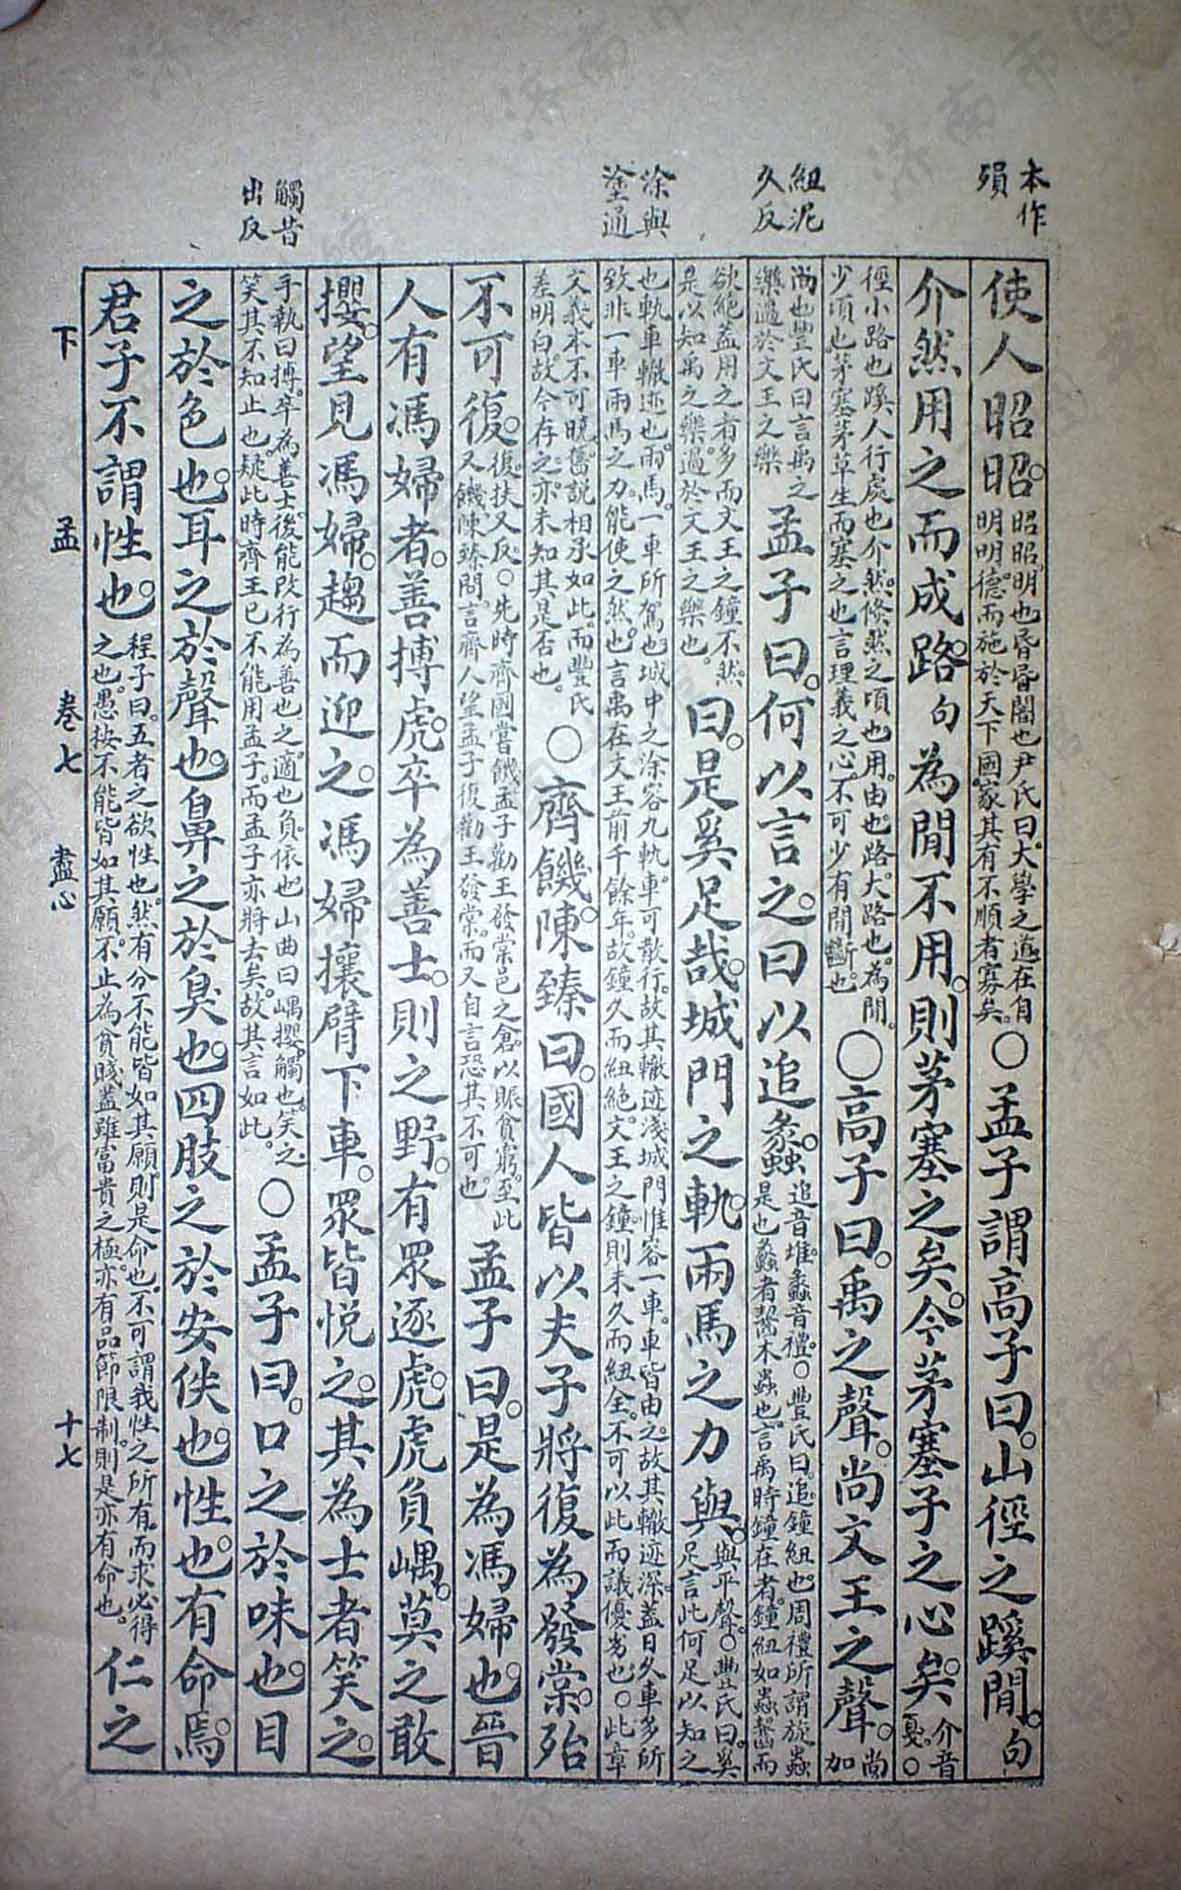 本作
殞
紐泥
久反
涂與
塗通
觸昔
出反
使人昭昭。昭昭。明也昏昏闇也尹氏曰。大學之道在自明明德。而施於天下國家其有不順者寡矣。〇孟子謂高子曰。山徑之蹊間。句
介然用之而成路。句為間不用。則茅塞之矣。今茅塞子之心矣。介音戛。〇
徑小路也蹊人行處也介然。倐然之頃也用。由也。路。大路也。為間。少頃也茅塞茅草生而塞之也言理義之心。不可少有間斷也。〇高子曰。禹之聲。尚文王之聲。尚加
尚也豐氏曰言禹之樂過於文王之樂孟子曰。何以言之。曰以追蠡。追音堆。蠡音禮。〇豐氏曰。追。鐘紐也。周禮所謂旋蟲是也蠡者齧木蟲也。言禹時鐘在者。鐘紐如蟲齧而
欲絕蓋用之者多而文王之鐘不然。是以知禹之樂。過於文王之樂也。曰。是奚足哉。城門之軌。兩馬之力與。與平聲。〇豐氏曰。奚足言此何足以知之
也軌車轍迹也。兩馬。一車所駕也城中之涂容九軌。車可散行。故其轍迹淺城門惟容一車。車皆由之。故其轍迹深。蓋日久車多所致非一車兩馬之力。能使之然也。言禹在文王前千餘年。故鐘久而紐絕。文王之鐘。則未久而紐全。不可以此而議優劣也。〇此章
文義本不可曉。舊說相承如此。而豐氏差明白。故今存之。亦未知其是否也。〇齊饑。陳臻曰。國人皆以夫子將復為發棠。殆
不可復。復。扶又反。〇先時齊國嘗饑孟子勸王發棠邑之倉。以賑貧窮。至此又饑陳臻問。言齊人望孟子復勸王發棠。而又自言恐其不可也。孟子曰。是為馮婦也。晉
人有馮婦者。善搏虎。卒為善士。則之野。有眾逐虎。虎負嵎。莫之敢
攖。望見馮婦。趨而迎之。馮婦攘臂下車。眾皆悅之。其為士者笑之。
手執曰搏。卒為善士。後能改行為善也之。適也負。依也山曲曰嵎攖。觸也。笑之。笑其不知止也。疑此時齊王已不能用孟子。而孟子亦將去矣。故其言如此。〇孟子曰。口之於味也。目
之於色也。耳之於聲也。鼻之於臭也。四肢之於安佚也。性也。有命焉。
君子不謂性也。程子曰。五者之欲性也。然有分不能皆如其願則是命也。不可謂我性之所有。而求必得之也。愚按不能皆如其願。不止為貧賤蓋雖富貴之極。亦有品節限制。則是亦有命也。仁之
下　孟　卷七　盡心　十七